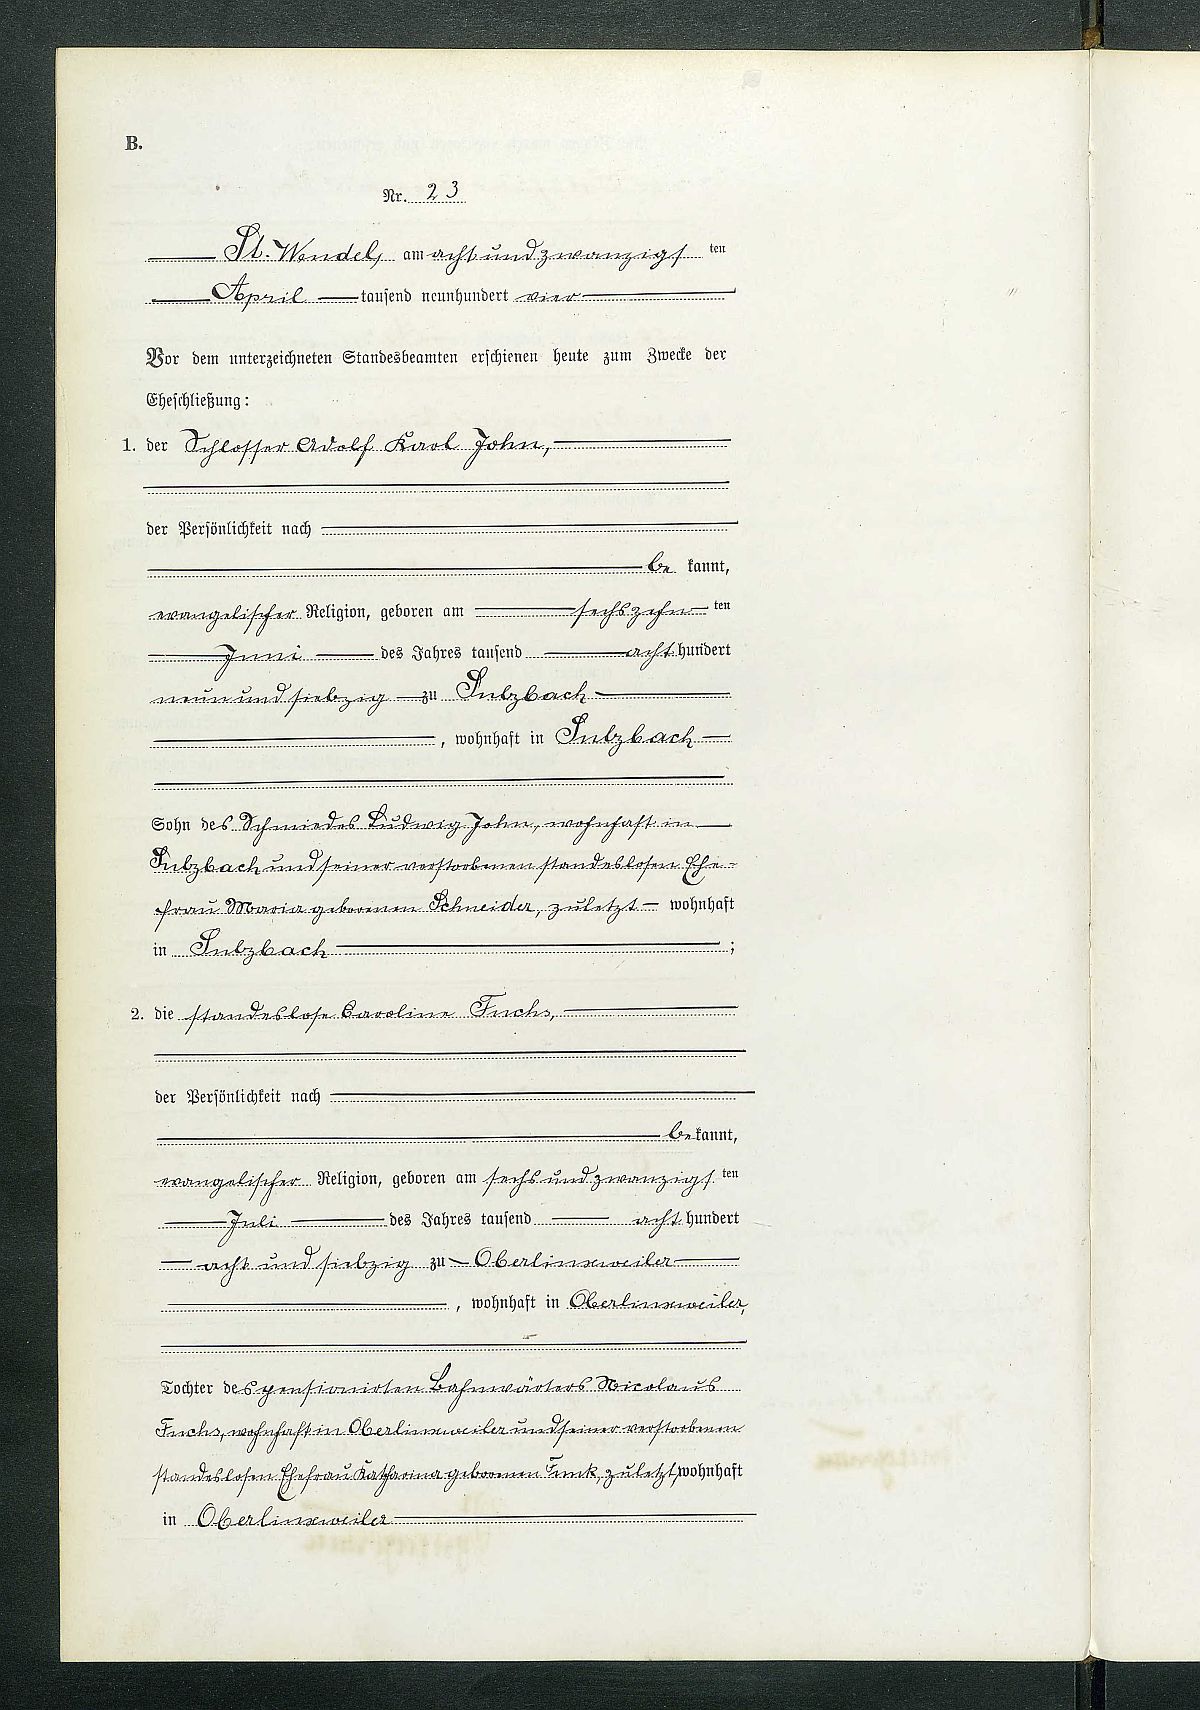 B.
Nr. 23
St. Wendel, am achtundzwanzigs ten
April tausend neunhundert vier
Vor dem unterzeichneten Standesbeamten erschienen heute zum Zwecke der
Eheschließung:
1. der Schlosser Adolf Karl John,
der Persönlichkeit nach
be kannt,
evangelischer Religion, geboren am sechszehn ten
Juni des Jahres tausend acht hundert
neunundsiebzig zu Sulzbach
, wohnhaft in Sulzbach
Sohn des Schmiedes Ludwig John, wohnhaft in
Sulzbach und seiner verstorbenen standeslosen Ehe-
frau Maria geborenen Schneider, zuletzt wohnhaft
in Sulzbach ;
2. die standeslose Caroline Fuchs,
der Persönlichkeit nach
bekannt,
evangelischer Religion, geboren am sechsundzwanzigs ten
Juli des Jahres tausend acht hundert
acht und siebzig zu Oberlinxweiler
, wohnhaft in Oberlinxweiler,
Tochter des pensionirten Bahnwärters Nicolaus
Fuchs, wohnhaft in Oberlinxweiler und seiner verstorbenen
standeslosen Ehefrau Katharina geborenen Funk, zuletzt wohnhaft
in Oberlinxweiler